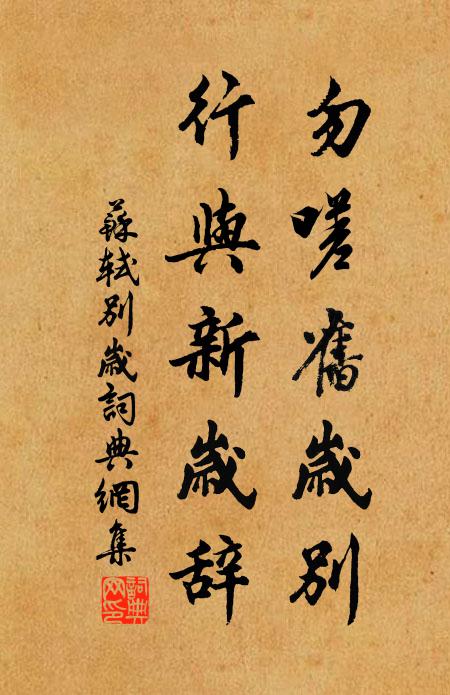 勿嗟舊歲別
行與新歲辞
蘇軾別歲詞典網集
詞典网印